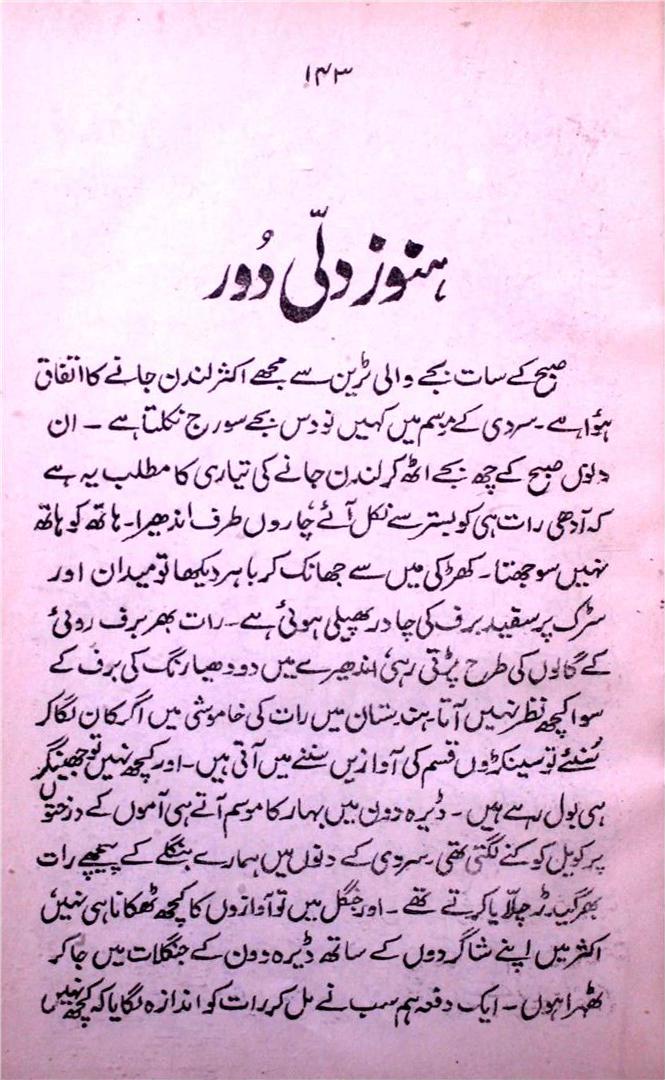 ۱۴۳
ہنوز دلّی دُور
صبح کے سات بجے والی ٹرین سے مجھے اکثر لندن جانے کا اتفاق
ہؤا ہے ۔ سردی کے موسم میں کہیں نو دس بجے سورج نکلتا ہے ۔ ان
دنوں صبح کے چھ بجے اٹھ کر لندن جانے کی تیاری کا مطلب یہ ہے
کہ آدھی رات ہی کو بستر سے نکل آئے چاروں طرف اندھیرا۔ ہاتھ کو ہاتھ
نہیں سوجھتا ۔ کھڑکی میں سے جھانک کر باہر دیکھا تو میدان اور
سڑک پر سفید برف کی چادر پھیلی ہوئی ہے ۔ رات بھر برف روئی
کے گالوں کی طرح پڑتی رہی اندھیرے میں دودھیا رنگ کی برف کے
سوا کچھ نظر نہیں آتا ۔ ہندستان میں رات کی خاموشی میں اگر کان لگا کر
سُنئے تو سینکڑوں قسم کی آوازیں سننے میں آتی ہیں ۔ اور کچھ نہیں تو جھینگر
ہی بول رہے ہیں ۔ ڈیرہ دون میں بہار کا موسم آتے ہی آموں کے درختوں
پر کویل کوکنے لگتی تھی ۔ سردی کے دنوں میں ہمارے بنگلے کے پیچھے رات
بھر گیدڑ چلّایا کرتے تھے ۔ اور جنگل میں تو آوازوں کا کچھ ٹھکانا ہی نہیں
اکثر میں اپنے شاگردوں کے ساتھ ڈیرہ دون کے جنگلات میں جا کر
ٹھہرا ہوں ۔ ایک دفعہ ہم سب نے مل کر رات کو اندازہ لگایا کہ کچھ نہیں